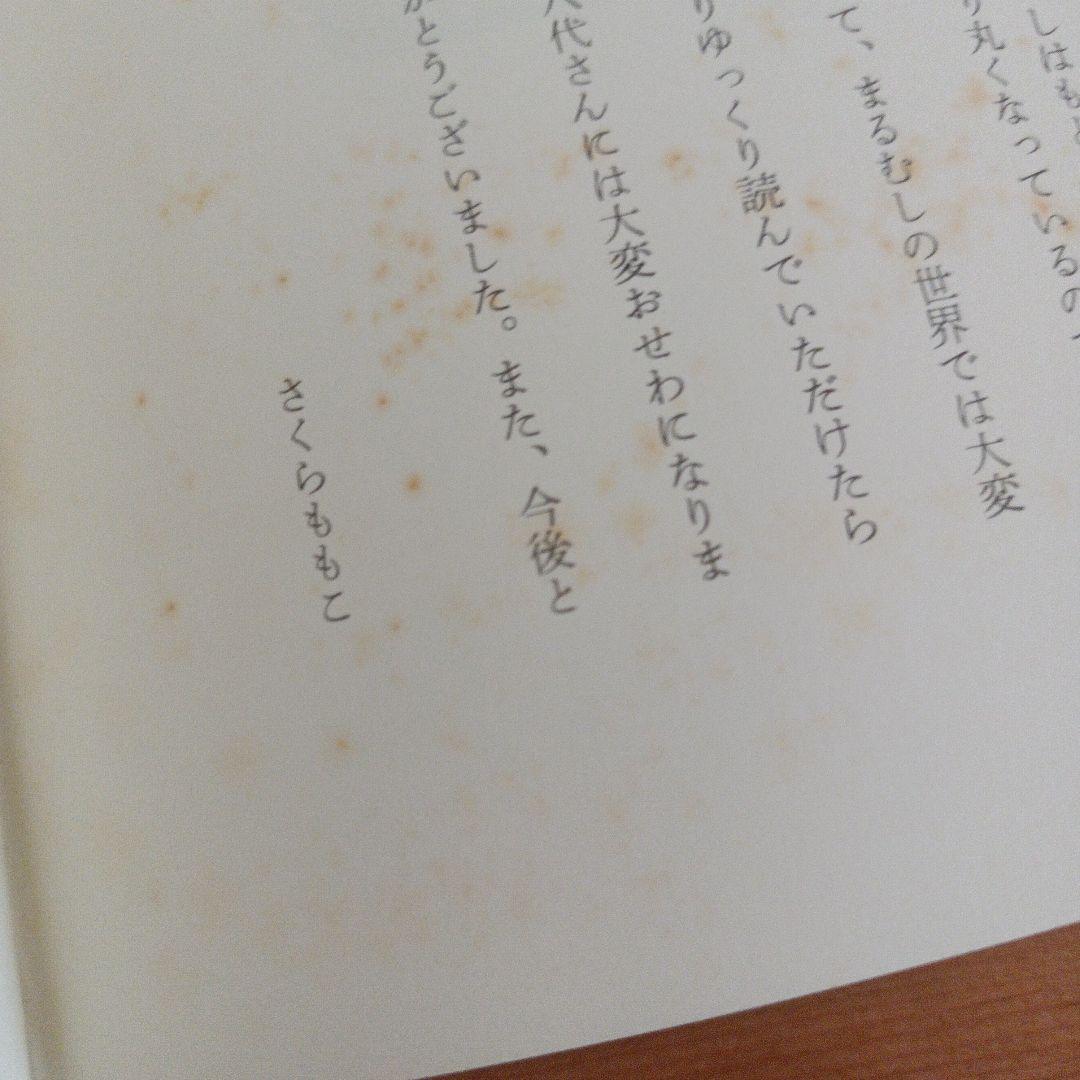 しはもと
り丸くなっているので
て、まるむしの世界では大変
りゆっくり読んでいただけたら
代さんには大変おせわになりま
がとうございました。また、今後と
さくらももこ